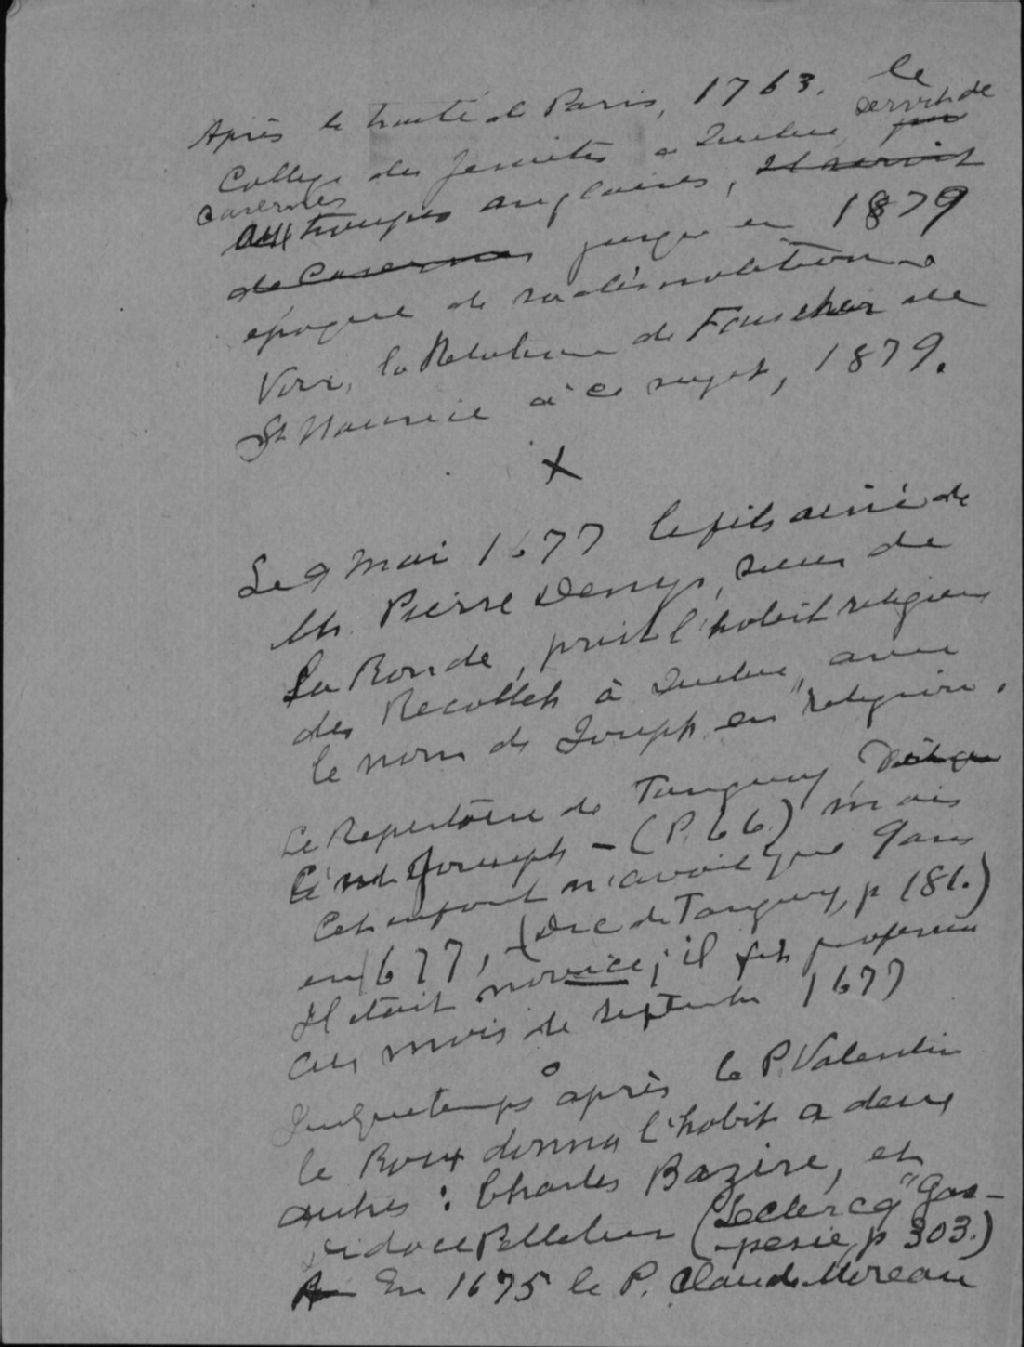 Après le traité de Paris, 1763. le
College des Jesuites a Quebec servit de
casernes
aux troupes anglaises, il servit
de casernes jusque en 1879
époque de sa démolition.
Voir, la Relation de Faucher de
St Maurice à ce sujet, 1879.
X
Le 9 Mai 1677 le fils ainé de
M. Pierre Denys, sieur de
La Ronde, prit l'habit religieux
des Recollets à Quebec, avec
le nom de Joseph en religion.
Le Repertoire de Tanguay
Joseph - (P. 66.) mais
cet enfant n'avait que 9 ans
en 1677, (Dic de Tanguay, p 181.)
Il était novice; il fit profession
au mois de septembre 1677
Quelque temps après le P. Valentin
le Roux donna l'habit a deux
autres : Charles Bazire, et
Didace Pelletier (Leclercq "Gas-
pesie, p 303.)
En 1675 le P. Claude Moreau